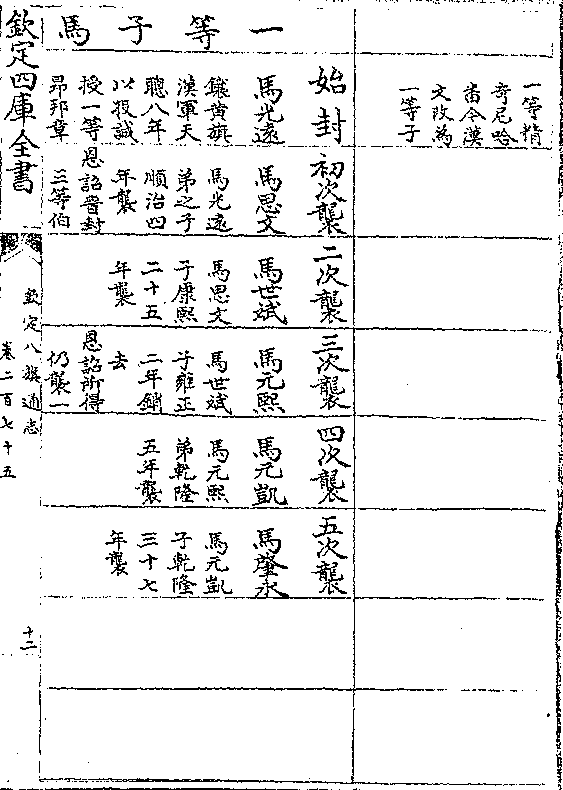 一等精
奇尼哈
番今漢
文改為
一等子
始封
馬光遠
鑲黄旗
漢軍天
聰八年
以投誠
授一等
昂邦章
初次襲
馬思文
馬光遠
弟之子
順治四
年襲
恩詔晉封
三等伯
二次襲
馬世斌
馬思文
子康熙
二十五
年襲
三次襲
馬元熙
馬世斌
子雍正
二年銷
去
恩詔所得
仍襲一
四次襲
馬元凱
馬元熙
弟乾隆
五年襲
五次襲
馬肇永
馬元凱
子乾隆
三十七
年襲
一等子馬
欽定四庫全書
欽定八旗通志
卷二百七十五
十二